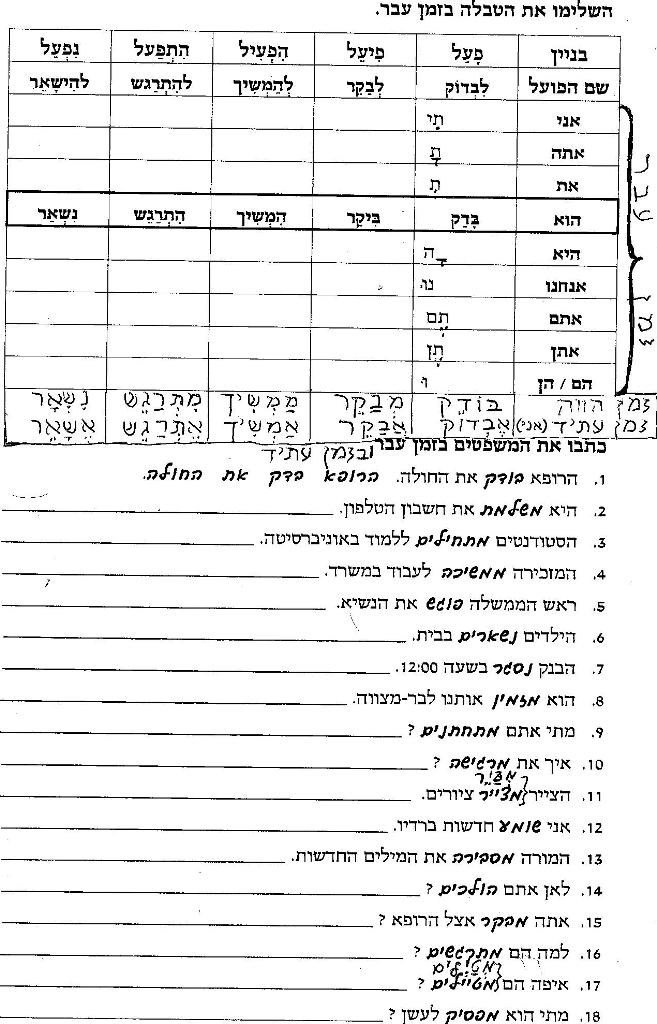 השלימו את הטבלה בזמן עבר.
בניין פָּעַל פִּיעֵל הִפְעִיל הִתְפַּעֵל נִפְעַל
שם הפועל לִבְדּוֹק לְבַקֵּר לְהַמְשִׁיךְ לְהִתְרַגֵּשׁ לְהִישָּׁאֵר
אני תִּי
אתה תָּ
את תְּ
הוא בָּדַק בִּיקֵּר הִמְשִׁיךְ הִתְרַגֵּשׁ נִשְׁאַר
היא ְ ָה
אנחנו נוּ
אתם תֶּם
אתן תֶּן
הם / הן וּ
זמן עבר
זמן הווה בּוֹדֵק מְבַקֵּר מַמְשִׁיךְ מִתְרַגֵּשׁ נִשְׁאָר
זמן עתיד (אני) אֶבְדוֹק אֲבַקֵּר אַמְשִׁיךְ אֶתְרַגֵּשׁ אֶשָּׁאֵר
כתבו את המשפטים בזמן עבר ובזמן עתיד
1. הרופא בודק את החולה. הרופא בדק את החולה.
2. היא משלמת את חשבון הטלפון.
3. הסטודנטים מתחילים ללמוד באוניברסיטה.
4. המזכירה ממשיכה לעבוד במשרד.
5. ראש הממשלה פוגש את הנשיא.
6. הילדים נשארים בבית.
7. הבנק נסגר בשעה 12:00.
8. הוא מזמין אותנו לבר-מצווה.
9. מתי אתם מתחתנים ?
10. איך את מרגישה ?
11. הצייר מצייר ציורים.
12. אני שומע חדשות ברדיו.
13. המורה מסבירה את המילים החדשות.
14. לאן אתם הולכים ?
15. אתה מבקר אצל הרופא ?
16. למה הם מתרגשים ?
17. איפה הם מטיילים ?
18. מתי הוא מפסיק לעשן ?